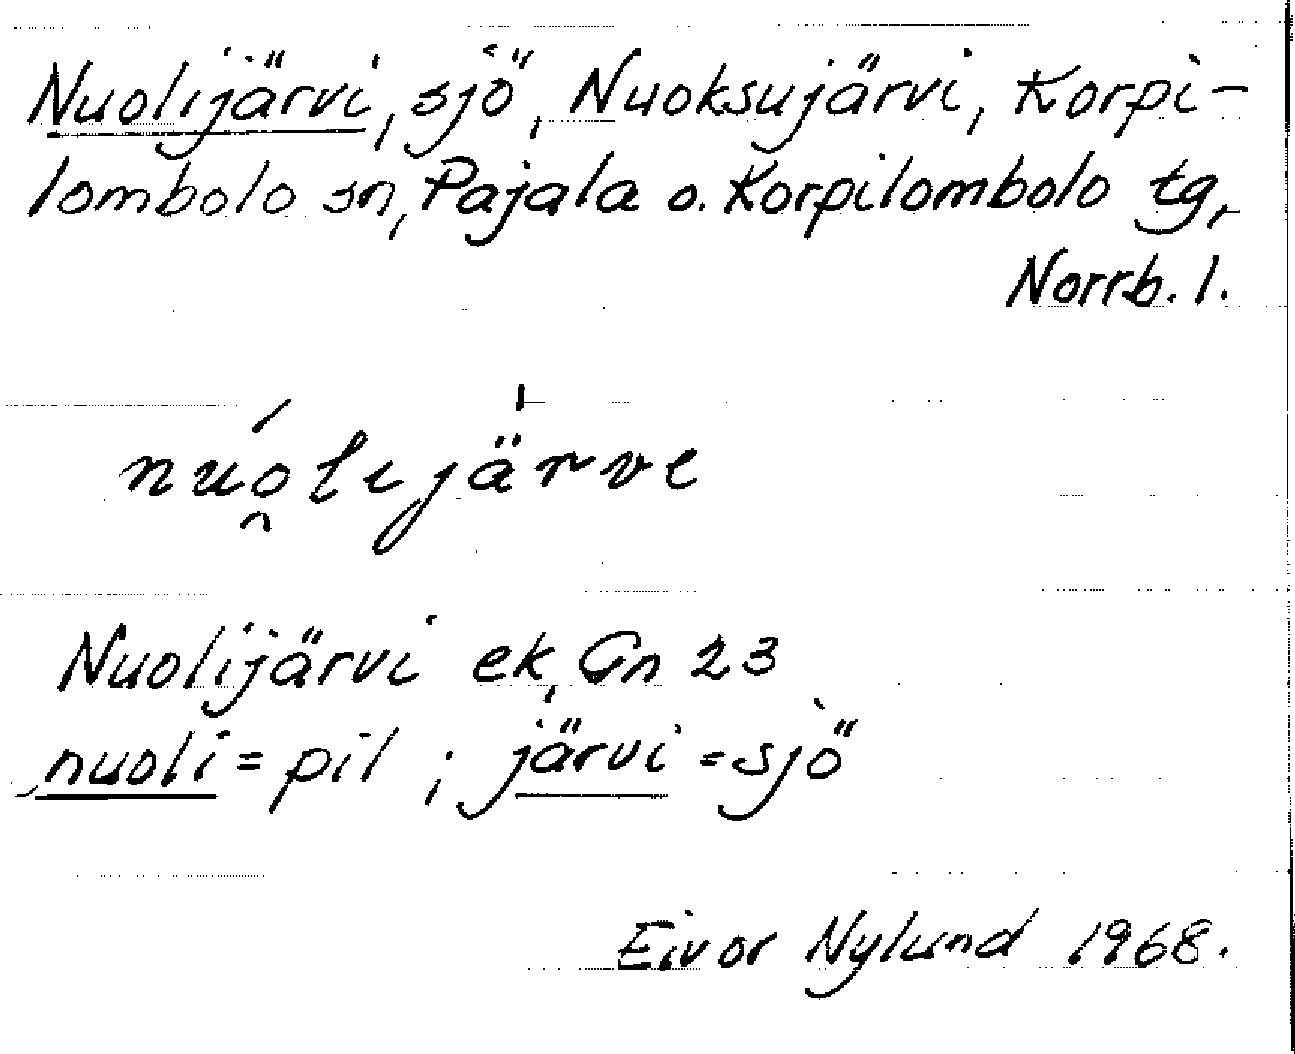 Nuolijärvi, sjö, Nuoksujärvi, Korpi-
lombolo sn, Pajala o. Korpilombolo tg,
Norrb. l.
nuolijärve
Nuolijärvi ek, Gn 23
nuoli = pil ; järvi = sjö
Eivor Nylund 1968.